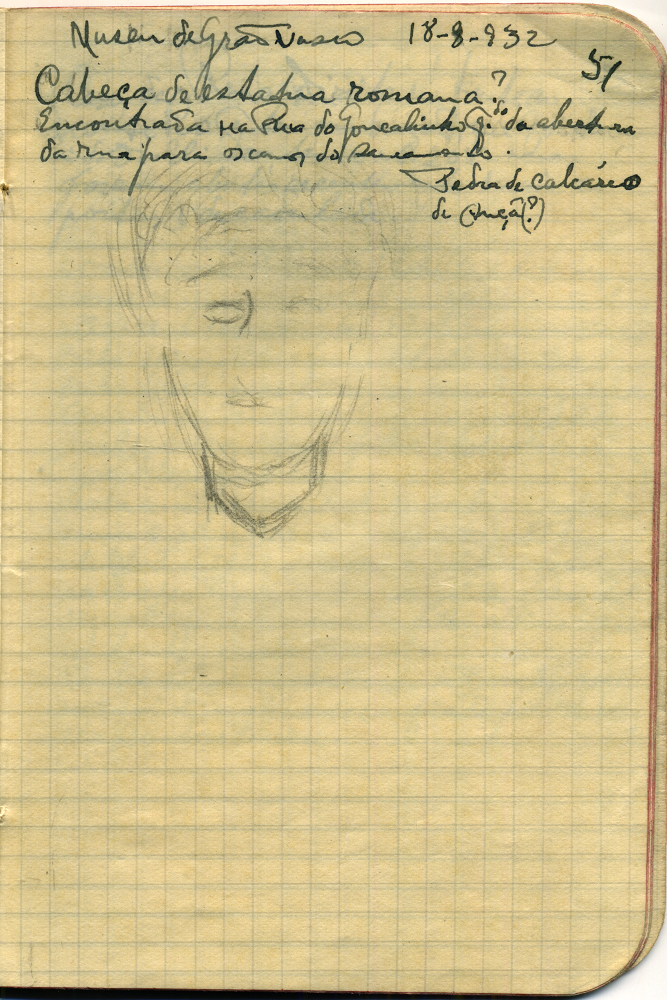 Museu de Grão Vasco 18-8-932
51
Cabeça de estatua romana?
Encontrada na Rua do Gonçalinho q.do da abertura
da rua para os canos do saneamento.
Pedra de calcáreo
de Ançã(?)